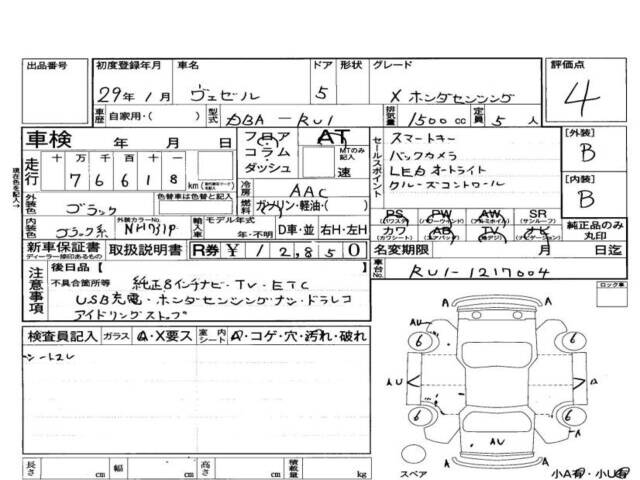 出品番号 初度登録年月 車名 ドア 形状 グレード 評価点
29年 1月 ヴェゼル 5 X ホンダセンシング 4
車歴 自家用・( ) 型式 DBA-RU1 排気量 1500 cc 定員 5 人
車検 年 月 日 フロア コラム ダッシュ AT MTのみ記入 速
セールスポイント
スマートキー
バックカメラ
LEDオートライト
クルーズコントロール
[外装] B
[内装] B
現在色を記入→
走行 十 万 千 百 十 一
7 6 6 1 8 km
冷房 AAC
外装色 ブラック 色替車は色替と記入 燃料 ガソリン・軽油・( )
PS (パワステ) PW (パワーウィンド) AW (アルミホイル) SR (サンルーフ)
カワ (カワシート) AB (エアバッグ) TV (地デジ) ナビ (ナビゲーション) 純正品のみ丸印
内装色 ブラック系 外装カラーNo. NH731P 輸入車 モデル年式 年・不明 D車・並 右H・左H
新車保証書 ディーラー捺印あるもの 取扱説明書 R券 ¥12,850 名変期限 月 日迄
車台No. RU1-1217004
注意事項 後日品【 】
不具合箇所等 純正8インチナビ・TV・ETC
USB充電・ホンダセンシング・ナン・ドラレコ
アイドリングストップ
ロック車
検査員記入 ガラス A・X要ス 室内シート A・コゲ・穴・汚れ・破れ
シートスレ
AU
6 6
AU A
6 6
AU
スペア
小A有・小U有
長さ cm 幅 cm 高さ cm 積載量 kg